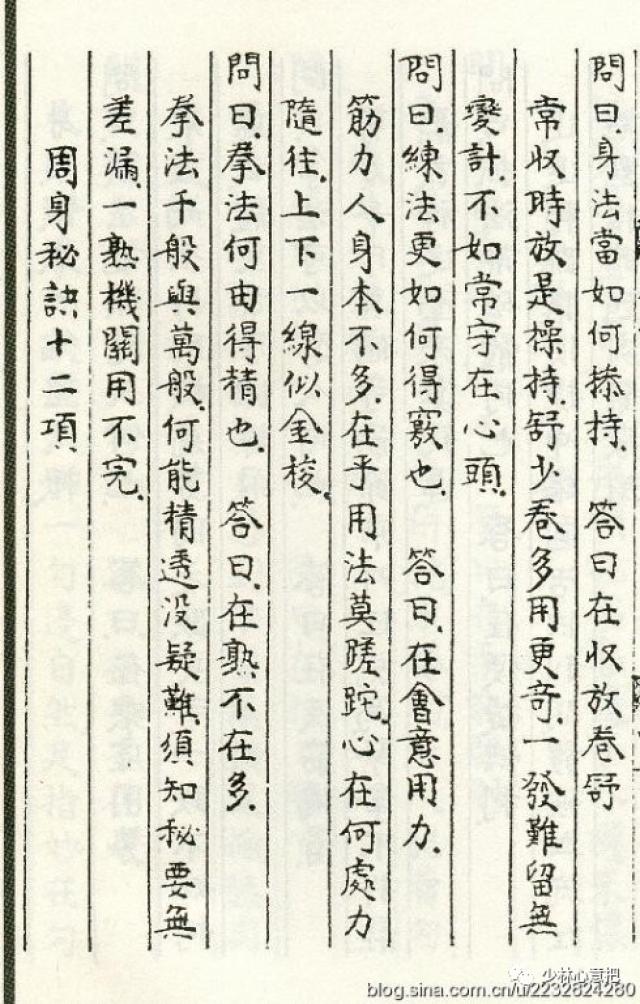 問曰、身法當如何操持、　答曰在収放卷舒
常収時放是操持、舒少卷多用更竒、一發難留無
變計、不如常守在心頭、
問曰、練法更如何得竅也、　答曰、在會意用力、
筋力人身本不多、在乎用法莫蹉跎、心在何處力
隨往、上下一線似金梭、
問曰、拳法何由得精也、　答曰、在熟不在多、
拳法千般與萬般、何能精透没疑難、須知秘要無
差漏、一熟機關用不完、
周身秘訣十二項
少林心意把
blog.sina.com.cn/u/2232624280